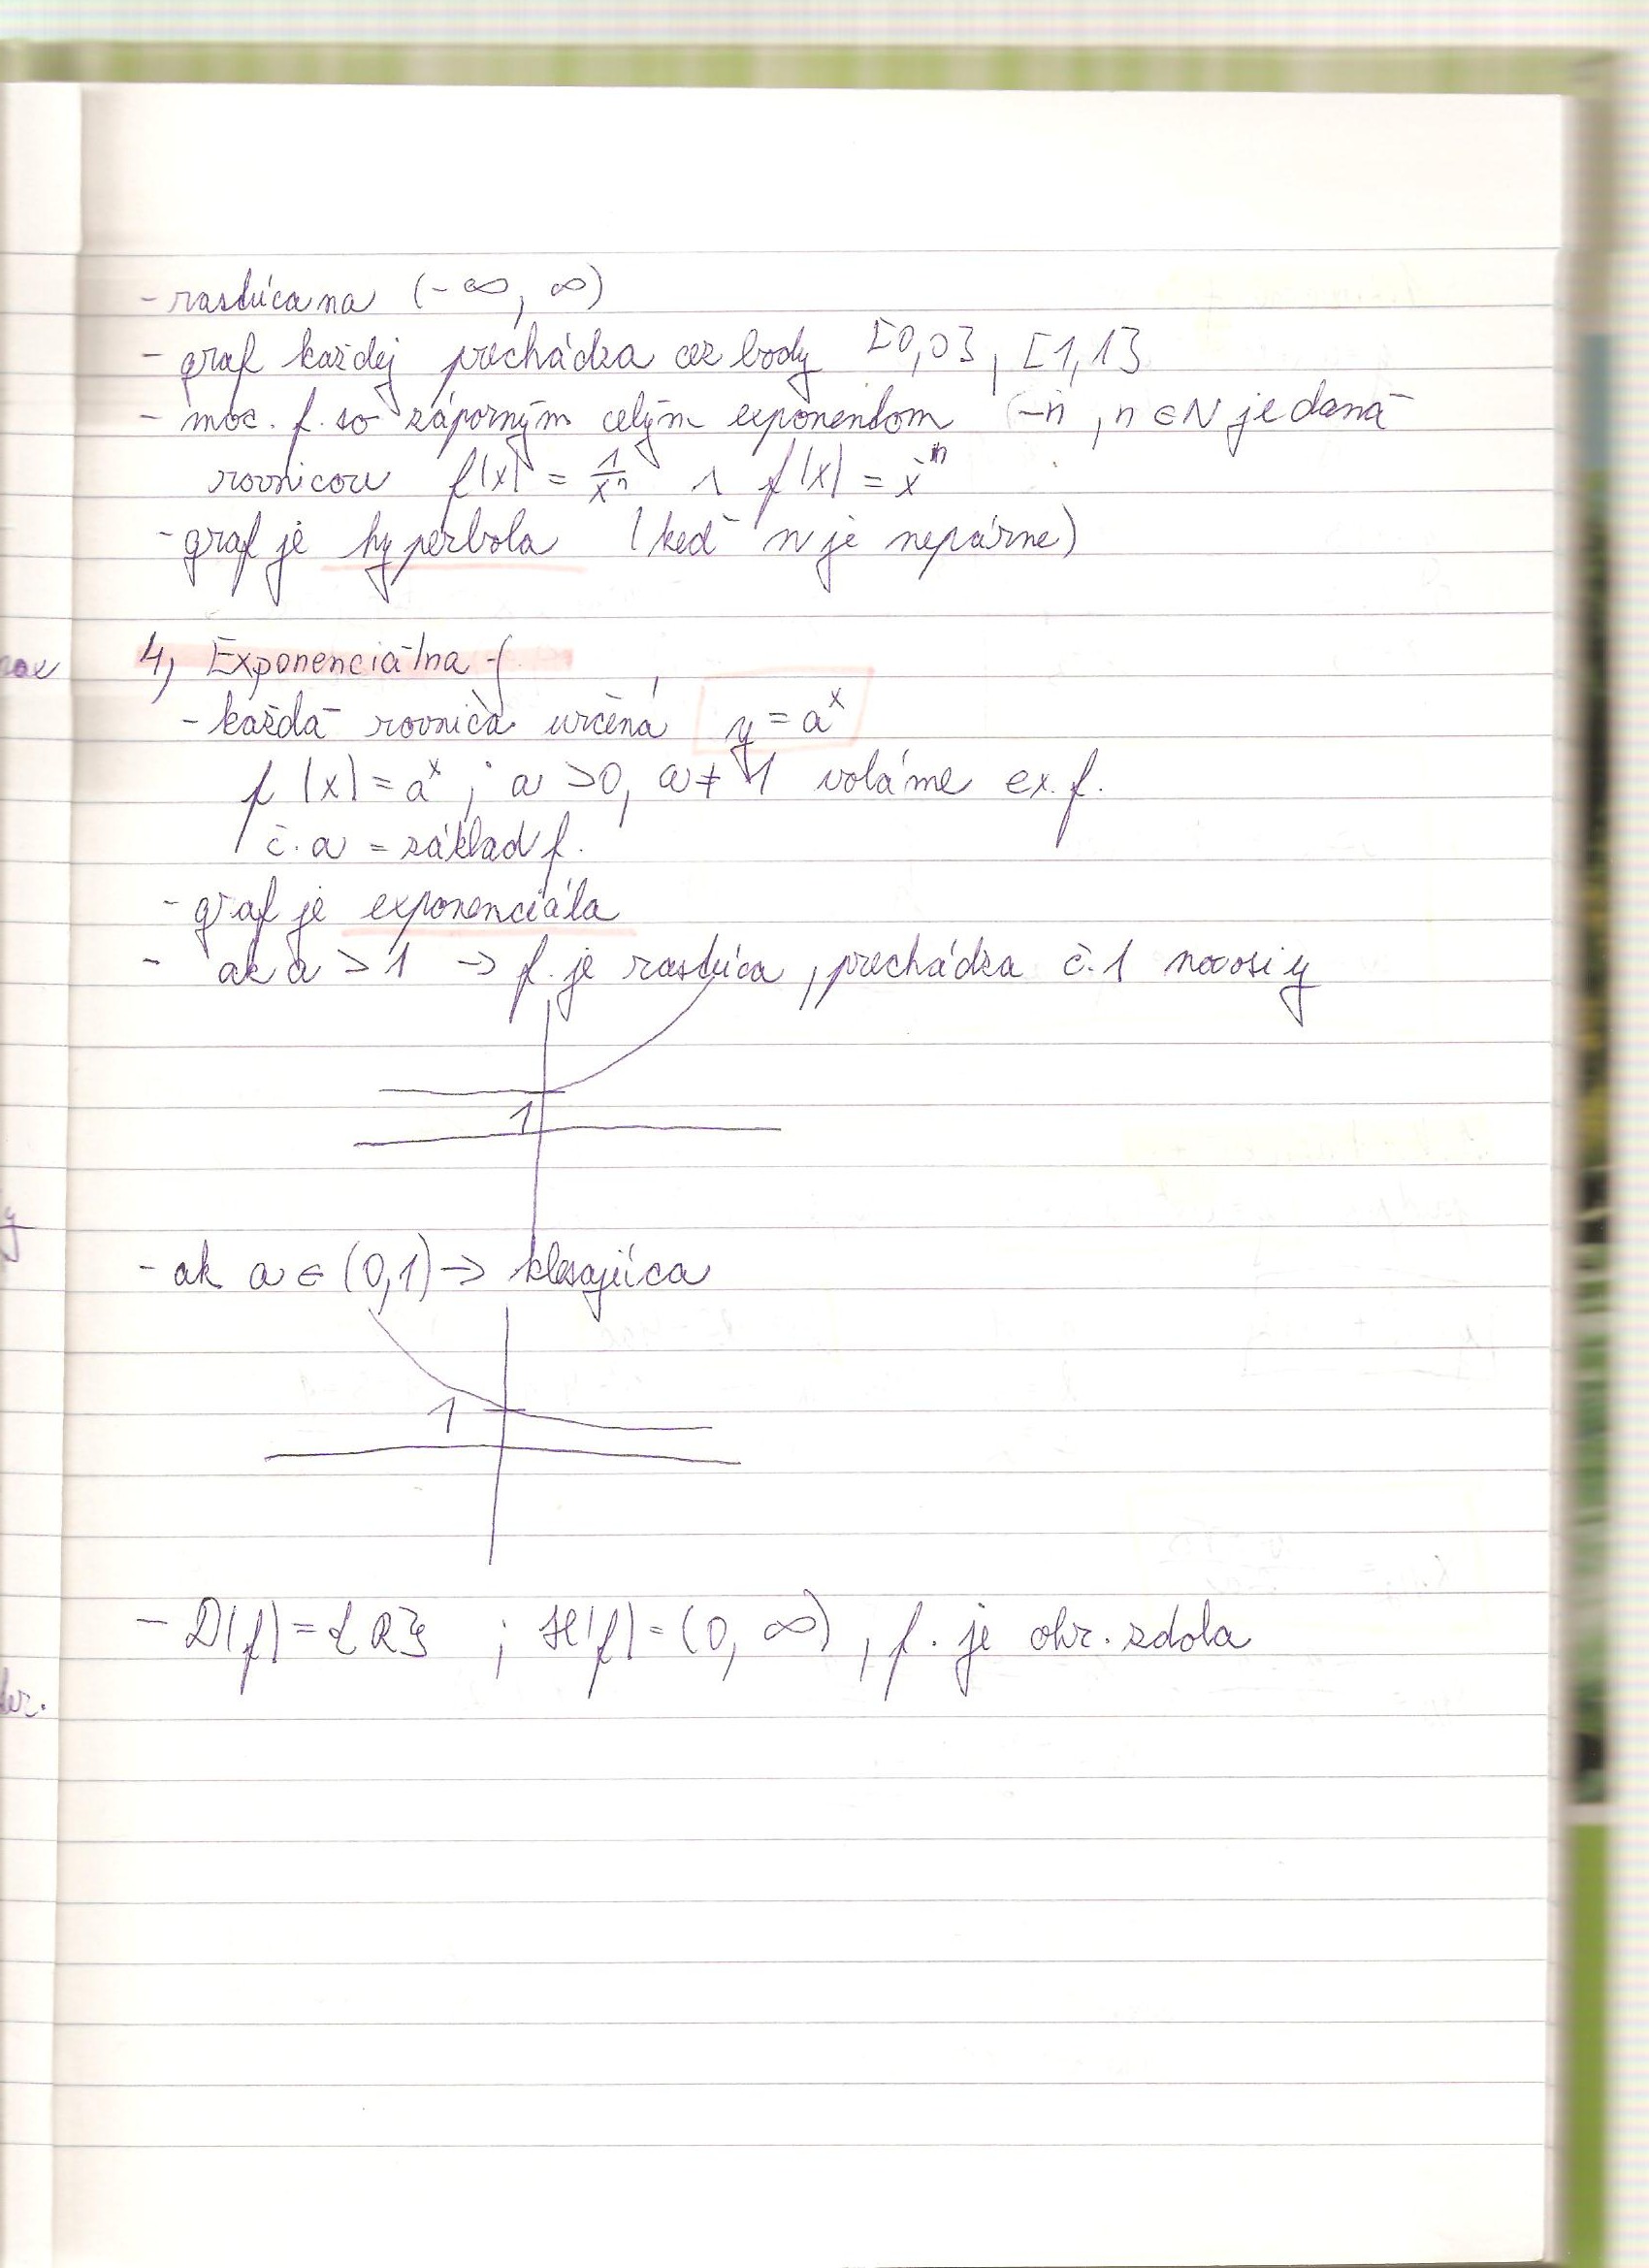 - rastúca na (-∞, ∞)
- graf každej prechádza cez body [0,0], [1,1]
- moc. f. so záporným celým exponentom -n, n ∈ N je daná
rovnicou f(x) = 1/xⁿ f(x) = x⁻ⁿ
- graf je hyperbola (keď n je nepárne)
4, Exponenciálna f
- každá rovnica určená y = aˣ
f(x) = aˣ ; a > 0, a ≠ 1 voláme ex. f.
č. a = základ f.
- graf je exponenciála
- ak a > 1 → f. je rastúca, prechádza č. 1 na osi y
1
- ak a ∈ (0,1) → klesajúca
1
- D(f) = {R} ; H(f) = (0, ∞), f. je ohr. zdola